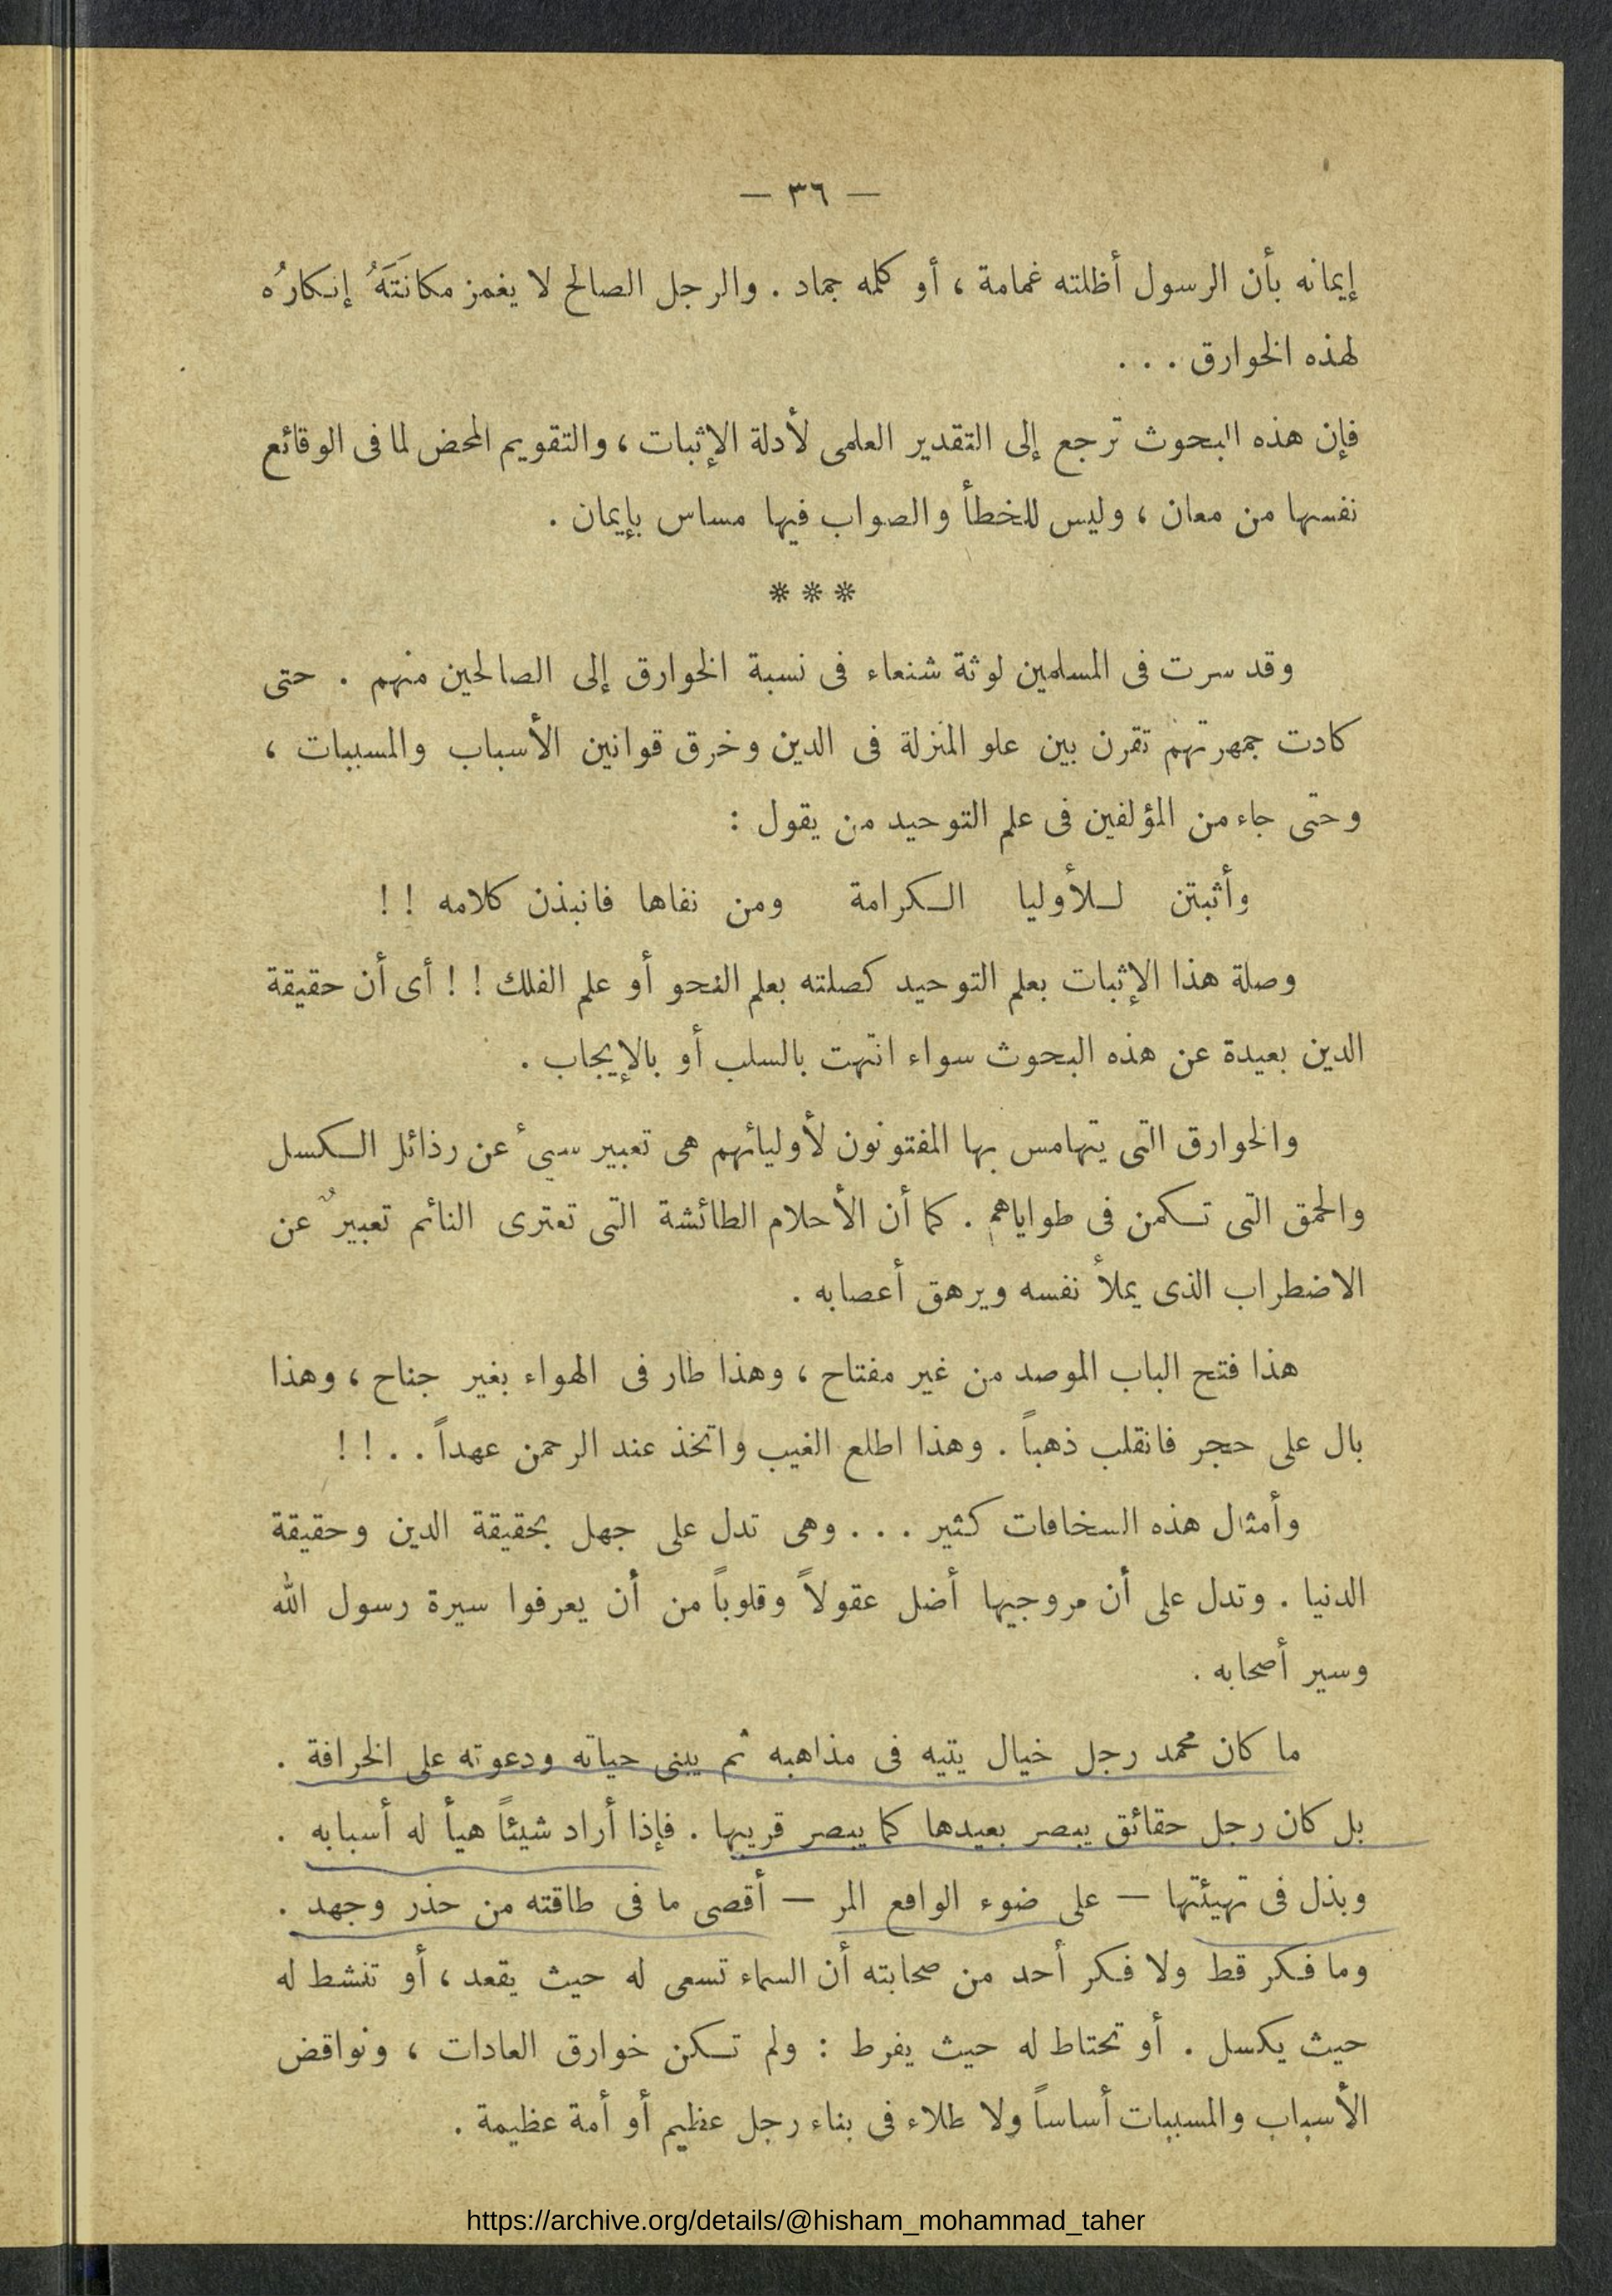 — ٣٦ —
إيمانه بأن الرسول أظلته غمامة ، أو كلمه جماد . والرجل الصالح لا يغمز مكانَتَهُ إنكارُه
لهذه الخوارق . . .
فإن هذه البحوث ترجع إلى التقدير العلمى لأدلة الإثبات ، والتقويم المحض لما فى الوقائع
نفسها من معان ، وليس للخطأ والصواب فيها مساس بإيمان .
* * *
وقد سرت فى المسلمين لوثة شنعاء فى نسبة الخوارق إلى الصالحين منهم . حتى
كادت جمهرتهم تقرن بين علو المنزلة فى الدين وخرق قوانين الأسباب والمسببات ،
وحتى جاء من المؤلفين فى علم التوحيد من يقول :
وأثبتن لـلأوليا الـكرامة ومن نفاها فانبذن كلامه ! !
وصلة هذا الإثبات بعلم التوحيد كصلته بعلم النحو أو علم الفلك ! ! أى أن حقيقة
الدين بعيدة عن هذه البحوث سواء انتهت بالسلب أو بالإيجاب .
والخوارق التى يتهامس بها المفتونون لأوليائهم هى تعبير سيئ عن رذائل الـكسل
والحمق التى تـكمن فى طواياهم . كما أن الأحلام الطائشة التى تعترى النائم تعبيرٌ عن
الاضطراب الذى يملأ نفسه ويرهق أعصابه .
هذا فتح الباب الموصد من غير مفتاح ، وهذا طار فى الهواء بغير جناح ، وهذا
بال على حجر فانقلب ذهباً . وهذا اطلع الغيب واتخذ عند الرحمن عهداً . . ! !
وأمثال هذه السخافات كثير . . . وهى تدل على جهل بحقيقة الدين وحقيقة
الدنيا . وتدل على أن مروجيها أضل عقولاً وقلوباً من أن يعرفوا سيرة رسول الله
وسير أصحابه .
ما كان محمد رجل خيال يتيه فى مذاهبه ثم يبنى حياته ودعوته على الخرافة .
بل كان رجل حقائق يبصر بعيدها كما يبصر قريبها . فإذا أراد شيئاً هيأ له أسبابه .
وبذل فى تهيئتها — على ضوء الواقع المر — أقصى ما فى طاقته من حذر وجهد .
وما فـكر قط ولا فـكر أحد من صحابته أن السماء تسعى له حيث يقعد ، أو تنشط له
حيث يكسل . أو تحتاط له حيث يفرط : ولم تـكن خوارق العادات ، ونواقض
الأسباب والمسببات أساساً ولا طلاء فى بناء رجل عظيم أو أمة عظيمة .
https://archive.org/details/@hisham_mohammad_taher